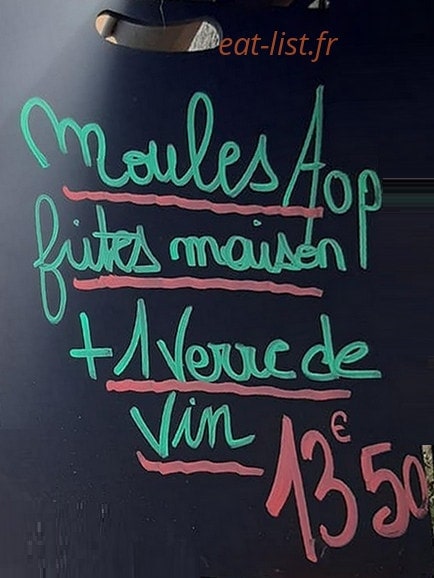 eat-list.fr
Moules Aop
frites maison
+ 1 Verre de
Vin
13€50